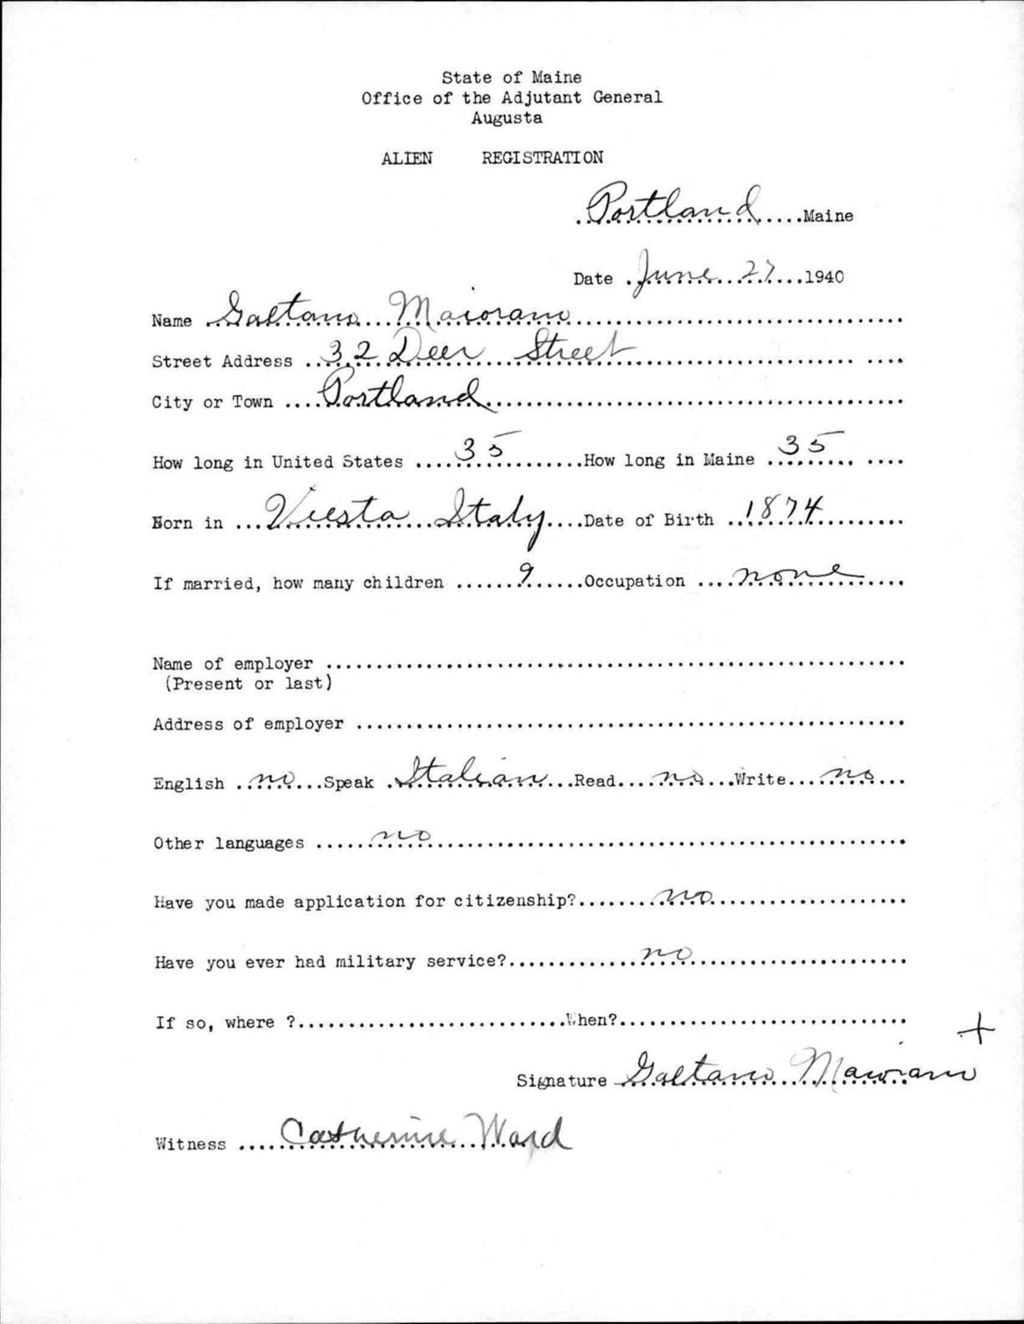 State of Maine
Office of the Adjutant General
Augusta
ALIEN REGISTRATION
Portland Maine
Date June 27 1940
Name Gaetano Maiorano
Street Address 32 Deer Street
City or Town Portland
How long in United States 35 How long in Maine 35
Born in Viesta Italy Date of Birth 1874
If married, how many children 9 Occupation none
Name of employer
(Present or last)
Address of employer
English no Speak Italian Read no Write no
Other languages no
Have you made application for citizenship? no
Have you ever had military service? no
If so, where ? When?
+
Signature Gaetano Maiorano
Witness Catherine Ward